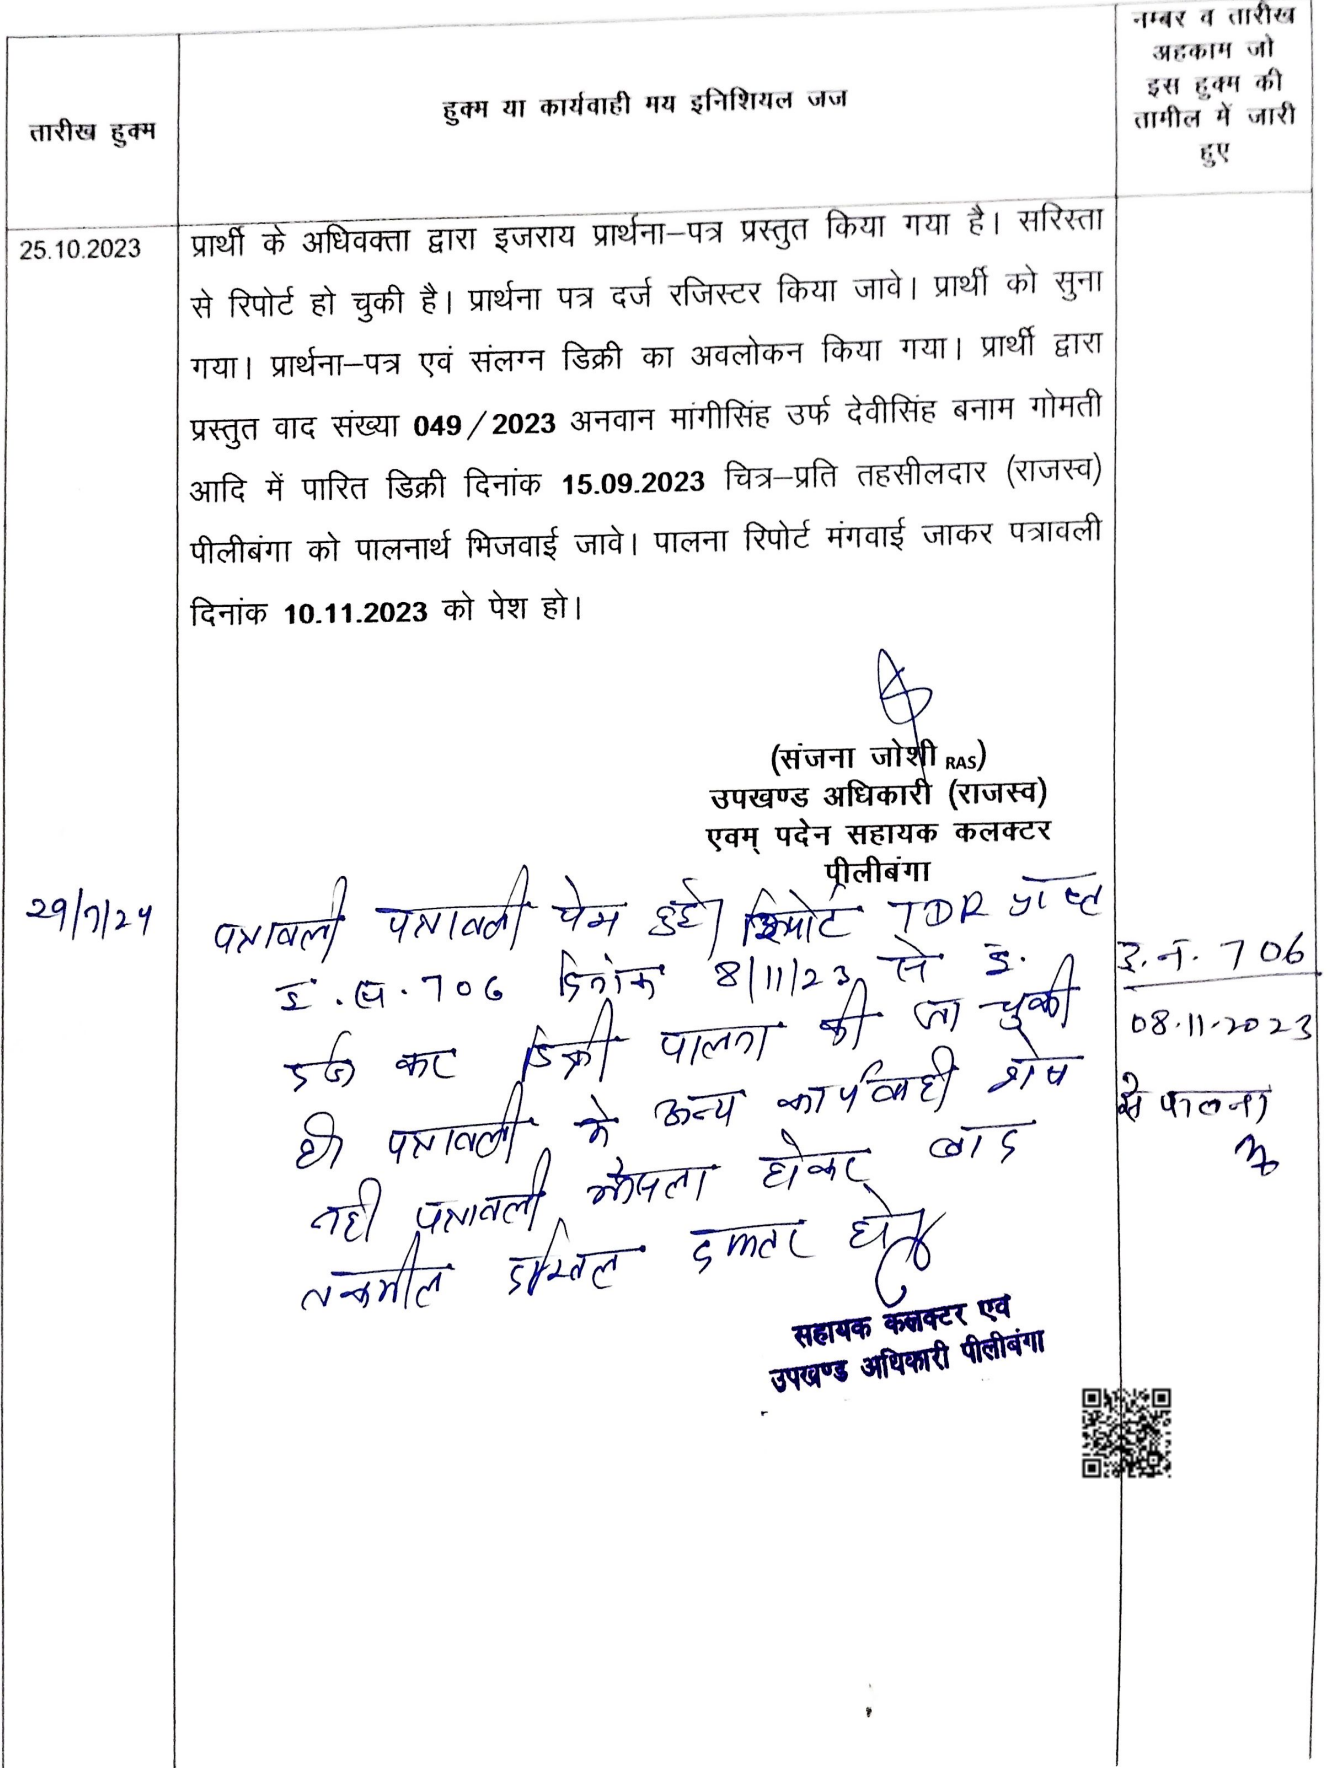 तारीख हुक्म
हुक्म या कार्यवाही मय इनिशियल जज
नम्बर व तारीख
अहकाम जो
इस हुक्म की
तामील में जारी
हुए
25.10.2023
प्रार्थी के अधिवक्ता द्वारा इजराय प्रार्थना–पत्र प्रस्तुत किया गया है। सरिस्ता
से रिपोर्ट हो चुकी है। प्रार्थना पत्र दर्ज रजिस्टर किया जावे। प्रार्थी को सुना
गया। प्रार्थना–पत्र एवं संलग्न डिक्री का अवलोकन किया गया। प्रार्थी द्वारा
प्रस्तुत वाद संख्या 049/2023 अनवान मांगीसिंह उर्फ देवीसिंह बनाम गोमती
आदि में पारित डिक्री दिनांक 15.09.2023 चित्र–प्रति तहसीलदार (राजस्व)
पीलीबंगा को पालनार्थ भिजवाई जावे। पालना रिपोर्ट मंगवाई जाकर पत्रावली
दिनांक 10.11.2023 को पेश हो।
(संजना जोशी RAS)
उपखण्ड अधिकारी (राजस्व)
एवम् पदेन सहायक कलक्टर
पीलीबंगा
पत्रावली पत्रावली पेश हुई। रिपोर्ट TDR प्राप्त
706 दिनांक 8/11/23 से इ.
दर्ज कर डिक्री पालना की जा चुकी
है। पत्रावली में अन्य कार्यवाही शेष
नही पत्रावली फैसला होकर बाद
तकमील दाखिल दफ्तर हो
इ.न. 706
08.11.2023
से पालना
सहायक कलक्टर एवं
उपखण्ड अधिकारी पीलीबंगा